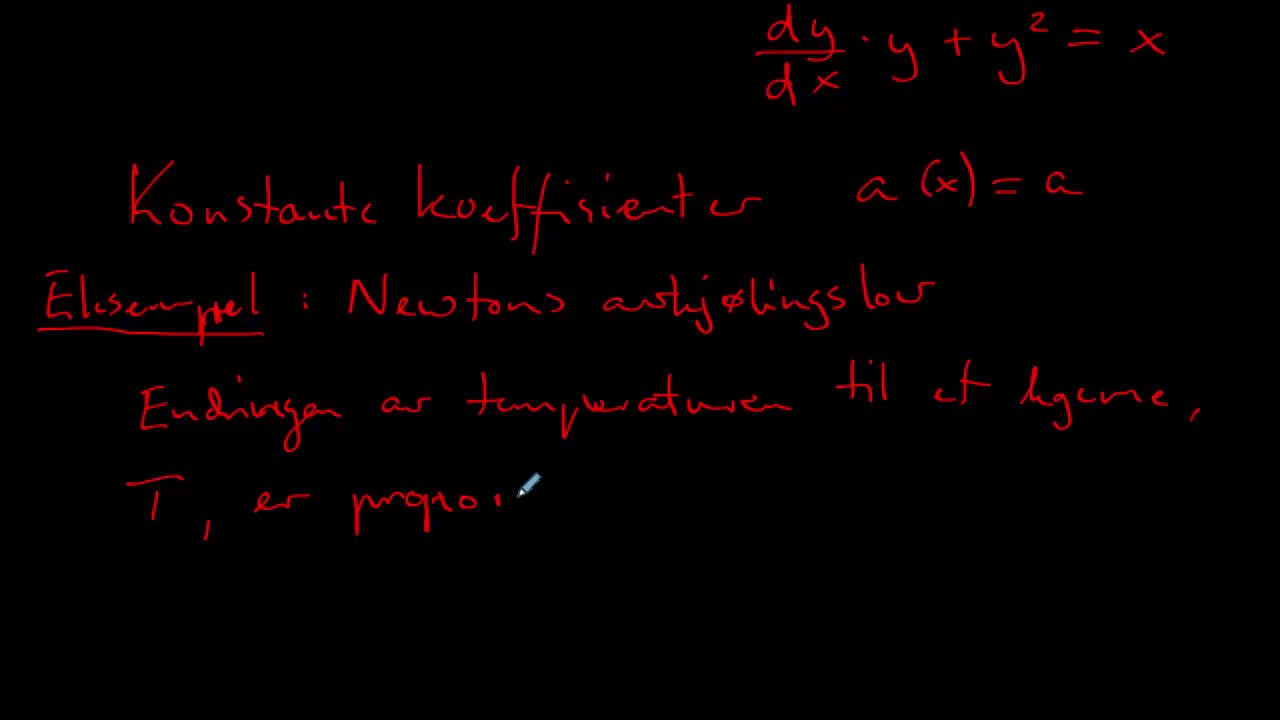 dy/dx · y + y² = x
Konstante koeffisienter a(x) = a
Eksempel : Newtons avkjølingslov
Endringen av temperaturen til et legeme,
T, er propor